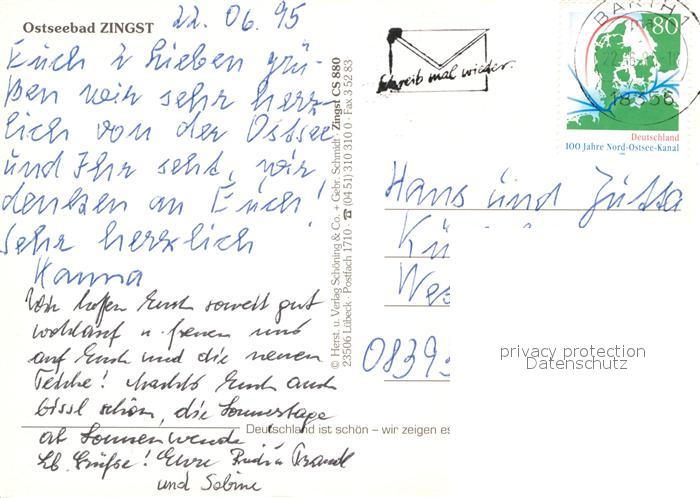 Ostseebad ZINGST
22.06.95
Euch 2 Lieben grü-
ßen wir sehr herz-
lich von der Ostsee
und Ihr seht, wir
denken an Euch!
Sehr herzlich
Hanna
Wir hoffen Euch soweit gut
wohlauf u. freuen uns
auf Euch und die neuen
Teiche! Machts Euch auch
bissl schön, die Sonnentage
ab Sonnenwende
Lb. Grüße! Eure
und Sabine
© Herst. u. Verlag Schöning & Co. · Gebr. Schmidt · Zingst CS 880
23506 Lübeck · Postfach 1710 · ☎ (04 51) 310 310 · Fax 3 52 83
Schreib mal wieder.
BARTH
18356
80
Deutschland
100 Jahre Nord-Ostsee-Kanal
Hans und Jutta
Kü
Wes
0839
privacy protection
Datenschutz
Deutschland ist schön – wir zeigen es